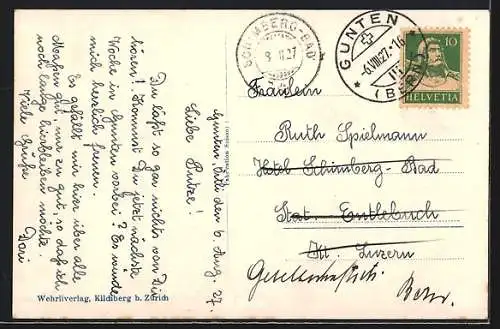 Gunten, den 6. Aug. 27.
Liebe Putze!
Du läßt so gar nichts von Dir
hören! Kommst Du jetzt nächste
Woche in Gunten vorbei? Es würde
mich herzlich freuen.
Es gefällt mir hier über alle
Maßen gut, nur zu gut, so daß ich
noch lange hierbleiben möchte.
Viele Grüße
Dori
Wehrliverlag, Kilchberg b. Zürich
SCHIMBERG-BAD
8 VIII 27
GUNTEN
-6.VIII.27.-16
(BERN)
10
HELVETIA
Fräulein
Ruth Spielmann
Hotel Schimberg-Bad
Stat. Entlebuch
Kt. Luzern
Bern.